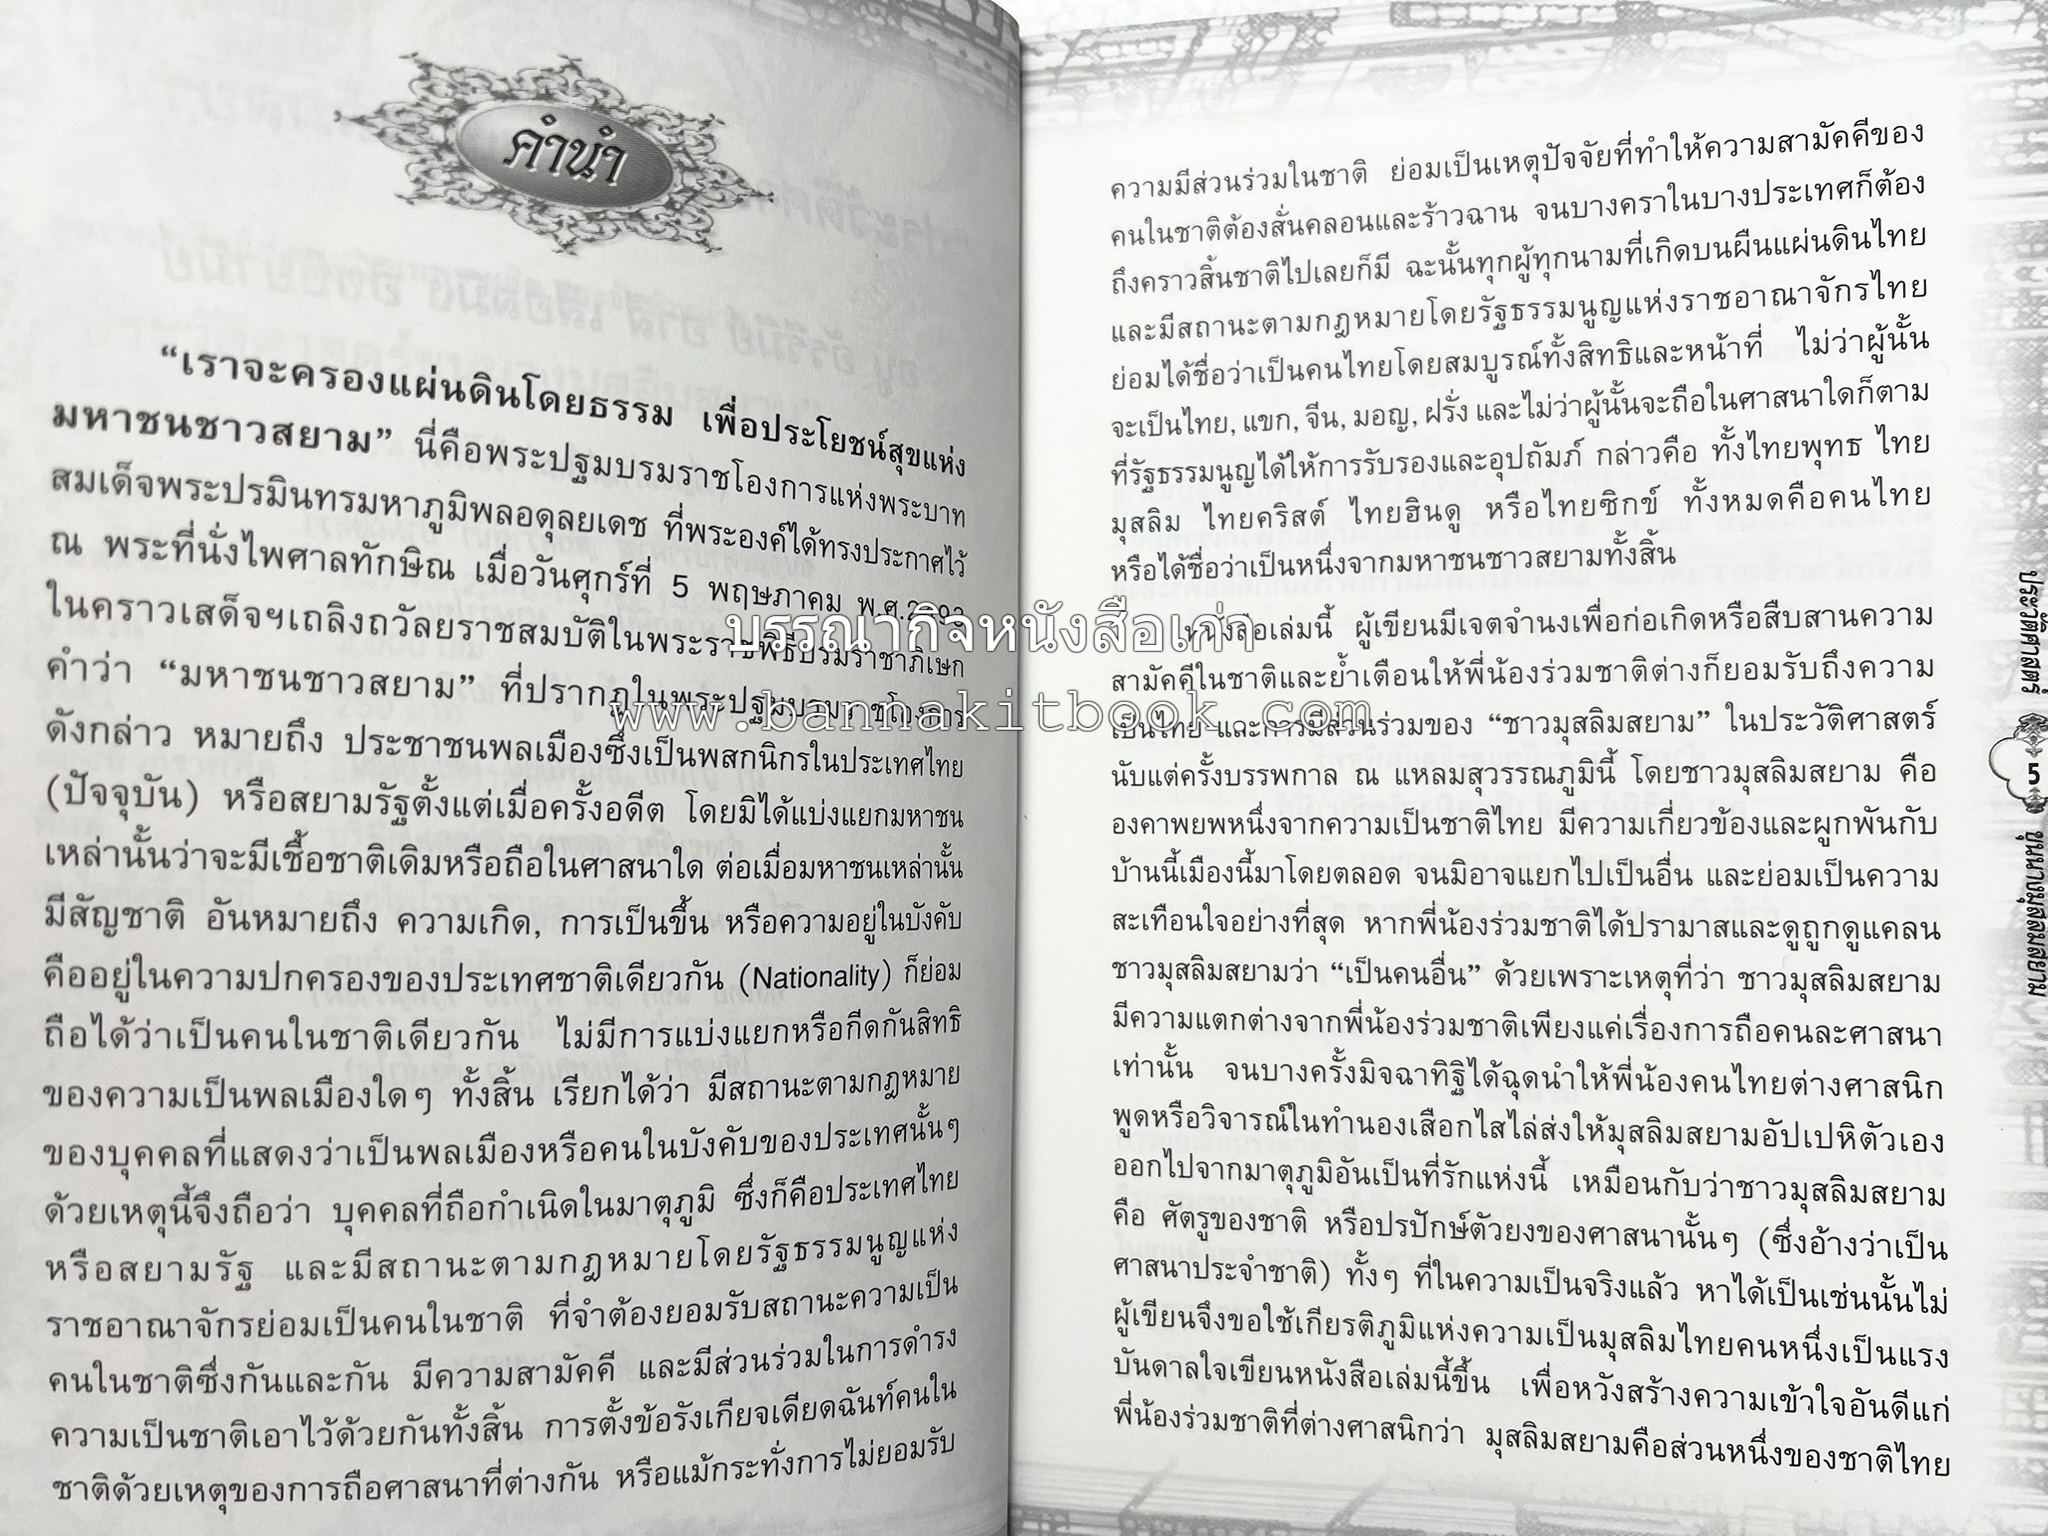 คำนำ
“เราจะครองแผ่นดินโดยธรรม เพื่อประโยชน์สุขแห่ง
มหาชนชาวสยาม” นี่คือพระปฐมบรมราชโองการแห่งพระบาท
สมเด็จพระปรมินทรมหาภูมิพลอดุลยเดช ที่พระองค์ได้ทรงประกาศไว้
ณ พระที่นั่งไพศาลทักษิณ เมื่อวันศุกร์ที่ 5 พฤษภาคม พ.ศ.2493
ในคราวเสด็จฯเถลิงถวัลยราชสมบัติในพระราชพิธีบรมราชาภิเษก
คำว่า “มหาชนชาวสยาม” ที่ปรากฏในพระปฐมบรมราชโองการ
ดังกล่าว หมายถึง ประชาชนพลเมืองซึ่งเป็นพสกนิกรในประเทศไทย
(ปัจจุบัน) หรือสยามรัฐตั้งแต่เมื่อครั้งอดีต โดยมิได้แบ่งแยกมหาชน
เหล่านั้นว่าจะมีเชื้อชาติเดิมหรือถือในศาสนาใด ต่อเมื่อมหาชนเหล่านั้น
มีสัญชาติ อันหมายถึง ความเกิด, การเป็นขึ้น หรือความอยู่ในบังคับ
คืออยู่ในความปกครองของประเทศชาติเดียวกัน (Nationality) ก็ย่อม
ถือได้ว่าเป็นคนในชาติเดียวกัน ไม่มีการแบ่งแยกหรือกีดกันสิทธิ
ของความเป็นพลเมืองใดๆ ทั้งสิ้น เรียกได้ว่า มีสถานะตามกฎหมาย
ของบุคคลที่แสดงว่าเป็นพลเมืองหรือคนในบังคับของประเทศนั้นๆ
ด้วยเหตุนี้จึงถือว่า บุคคลที่ถือกำเนิดในมาตุภูมิ ซึ่งก็คือประเทศไทย
หรือสยามรัฐ และมีสถานะตามกฎหมายโดยรัฐธรรมนูญแห่ง
ราชอาณาจักรย่อมเป็นคนในชาติ ที่จำต้องยอมรับสถานะความเป็น
คนในชาติซึ่งกันและกัน มีความสามัคคี และมีส่วนร่วมในการดำรง
ความเป็นชาติเอาไว้ด้วยกันทั้งสิ้น การตั้งข้อรังเกียจเดียดฉันท์คนใน
ชาติด้วยเหตุของการถือศาสนาที่ต่างกัน หรือแม้กระทั่งการไม่ยอมรับ
ความมีส่วนร่วมในชาติ ย่อมเป็นเหตุปัจจัยที่ทำให้ความสามัคคีของ
คนในชาติต้องสั่นคลอนและร้าวฉาน จนบางคราในบางประเทศก็ต้อง
ถึงคราวสิ้นชาติไปเลยก็มี ฉะนั้นทุกผู้ทุกนามที่เกิดบนผืนแผ่นดินไทย
และมีสถานะตามกฎหมายโดยรัฐธรรมนูญแห่งราชอาณาจักรไทย
ย่อมได้ชื่อว่าเป็นคนไทยโดยสมบูรณ์ทั้งสิทธิและหน้าที่ ไม่ว่าผู้นั้น
จะเป็นไทย, แขก, จีน, มอญ, ฝรั่ง และไม่ว่าผู้นั้นจะถือในศาสนาใดก็ตาม
ที่รัฐธรรมนูญได้ให้การรับรองและอุปถัมภ์ กล่าวคือ ทั้งไทยพุทธ ไทย
มุสลิม ไทยคริสต์ ไทยฮินดู หรือไทยซิกข์ ทั้งหมดคือคนไทย
หรือได้ชื่อว่าเป็นหนึ่งจากมหาชนชาวสยามทั้งสิ้น
หนังสือเล่มนี้ ผู้เขียนมีเจตจำนงเพื่อก่อเกิดหรือสืบสานความ
สามัคคีในชาติและย้ำเตือนให้พี่น้องร่วมชาติต่างก็ยอมรับถึงความ
เป็นไทย และการมีส่วนร่วมของ “ชาวมุสลิมสยาม” ในประวัติศาสตร์
นับแต่ครั้งบรรพกาล ณ แหลมสุวรรณภูมินี้ โดยชาวมุสลิมสยาม คือ
องคาพยพหนึ่งจากความเป็นชาติไทย มีความเกี่ยวข้องและผูกพันกับ
บ้านนี้เมืองนี้มาโดยตลอด จนมิอาจแยกไปเป็นอื่น และย่อมเป็นความ
สะเทือนใจอย่างที่สุด หากพี่น้องร่วมชาติได้ปรามาสและดูถูกดูแคลน
ชาวมุสลิมสยามว่า “เป็นคนอื่น” ด้วยเพราะเหตุที่ว่า ชาวมุสลิมสยาม
มีความแตกต่างจากพี่น้องร่วมชาติเพียงแค่เรื่องการถือคนละศาสนา
เท่านั้น จนบางครั้งมิจฉาทิฐิได้ฉุดนำให้พี่น้องคนไทยต่างศาสนิก
พูดหรือวิจารณ์ในทำนองเสือกไสไล่ส่งให้มุสลิมสยามอัปเปหิตัวเอง
ออกไปจากมาตุภูมิอันเป็นที่รักแห่งนี้ เหมือนกับว่าชาวมุสลิมสยาม
คือ ศัตรูของชาติ หรือปรปักษ์ตัวยงของศาสนานั้นๆ (ซึ่งอ้างว่าเป็น
ศาสนาประจำชาติ) ทั้งๆ ที่ในความเป็นจริงแล้ว หาได้เป็นเช่นนั้นไม่
ผู้เขียนจึงขอใช้เกียรติภูมิแห่งความเป็นมุสลิมไทยคนหนึ่งเป็นแรง
บันดาลใจเขียนหนังสือเล่มนี้ขึ้น เพื่อหวังสร้างความเข้าใจอันดีแก่
พี่น้องร่วมชาติที่ต่างศาสนิกว่า มุสลิมสยามคือส่วนหนึ่งของชาติไทย
ประวัติศาสตร์
5
ขุนนางมุสลิมสยาม
บรรณากิจหนังสือเก่า
www.bannakitbook.com